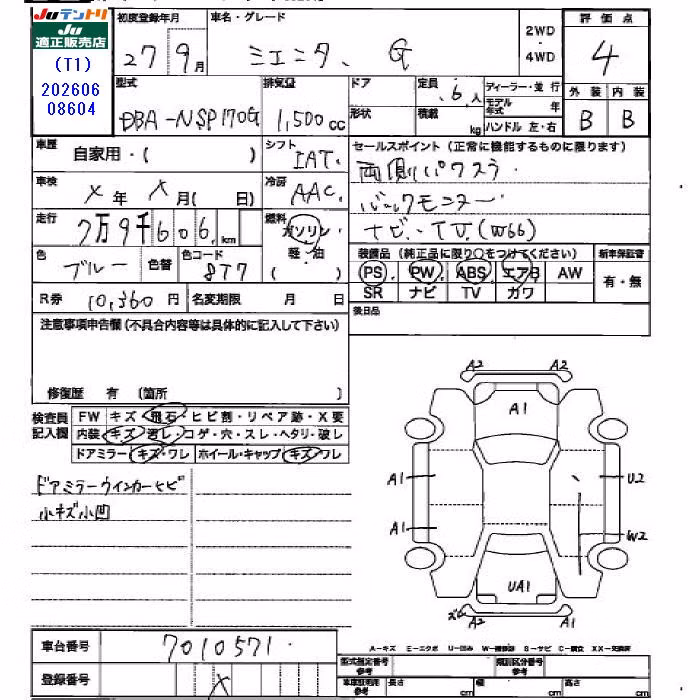 Juテントリ
Ju
適正販売店
(T1)
202606
08604
初度登録年月
27 9月
車名・グレード
シエンタ、 G
2WD
・
4WD
評価点
4
型式
DBA-NSP170G
排気量
1,500cc
ドア
形状
定員
6人
積載
kg
ディーラー・並行
モデル年式 年
ハンドル 左・右
外装 内装
B B
車歴
自家用・( )
シフト
IAT.
セールスポイント(正常に機能するものに限ります)
両側パワスラ
バックモニター
ナビ・TV.(W66)
車検
X年 X月( 日)
冷房
AAC.
走行
7万9千606.km
燃料
ガソリン
軽・油
( )
色
ブルー
色替
色コード
8T7
装備品(純正品に限り○をつけてください)
PS PW ABS エアB AW
SR ナビ TV カワ
新車保証書
有・無
R券 10,360円
名変期限 月 日
後日品
注意事項申告欄(不具合内容等は具体的に記入して下さい)
修復歴 有 (箇所 )
検査員
記入欄
FW キズ・飛石・ヒビ割・リペア跡・X要
内装 キズ・汚レ・コゲ・穴・スレ・ヘタリ・破レ
ドアミラー キズ・ワレ ホイール・キャップ キズ・ワレ
ドアミラーウインカーヒビ
小キズ小凹
A2 A2
A1
A1 U2
A1 W2
UA1
ズレ A2 A1
車台番号
7010571
登録番号
X
A-キズ E-エクボ U-凹み W-補修跡 S-サビ C-腐食 XX-交換済
型式指定番号
参考
類別区分番号
参考
車庫証明用
参考
長さ cm 幅 cm 高さ cm